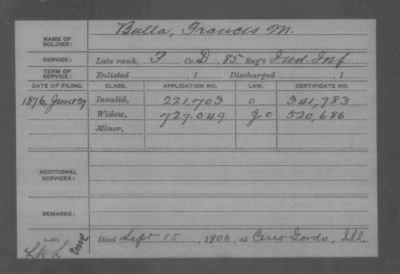 NAME OF SOLDIER: Bulla, Francis M.
SERVICE: Late rank, P Co. D, 85 Reg't Ind. Inf
TERM OF SERVICE: Enlisted , 1 Discharged , 1
DATE OF FILING. CLASS. APPLICATION NO. LAW. CERTIFICATE NO.
1876 June 29 Invalid, 221,703 o 341,783
Widow, 727,049 go 520,686
Minor,
ADDITIONAL SERVICES:
REMARKS:
Died Sept 15, 1900, at Cerro Gordo, Ill.